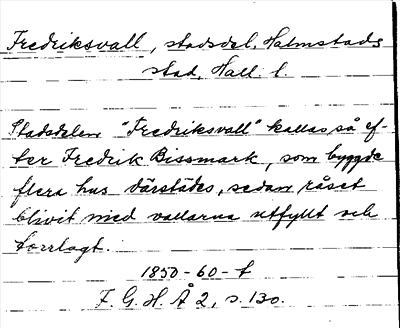 Fredriksvall, stadsdel, Halmstads
stad, Hall. l.
Stadsdelen "Fredriksvall" kallas så ef-
ter Fredrik Bissmark, som byggde
flera hus därstädes, sedan råset
blivit med vallarna utfyllt och
torrlagt.
1850-60-t
F. G. H. Å 2, s. 130.